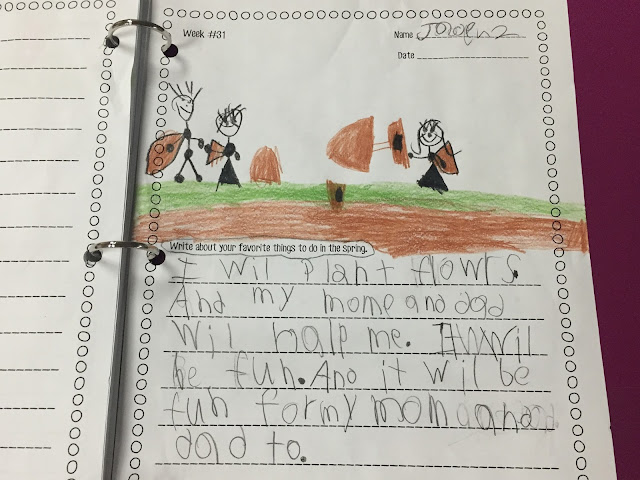 Week #31
Name
Date
Write about your favorite things to do in the spring.
I wil plant flowrs.
And my mome and dad
wil halp me. It wil
be fun. And it wil be
fun for my mom and
dad to.